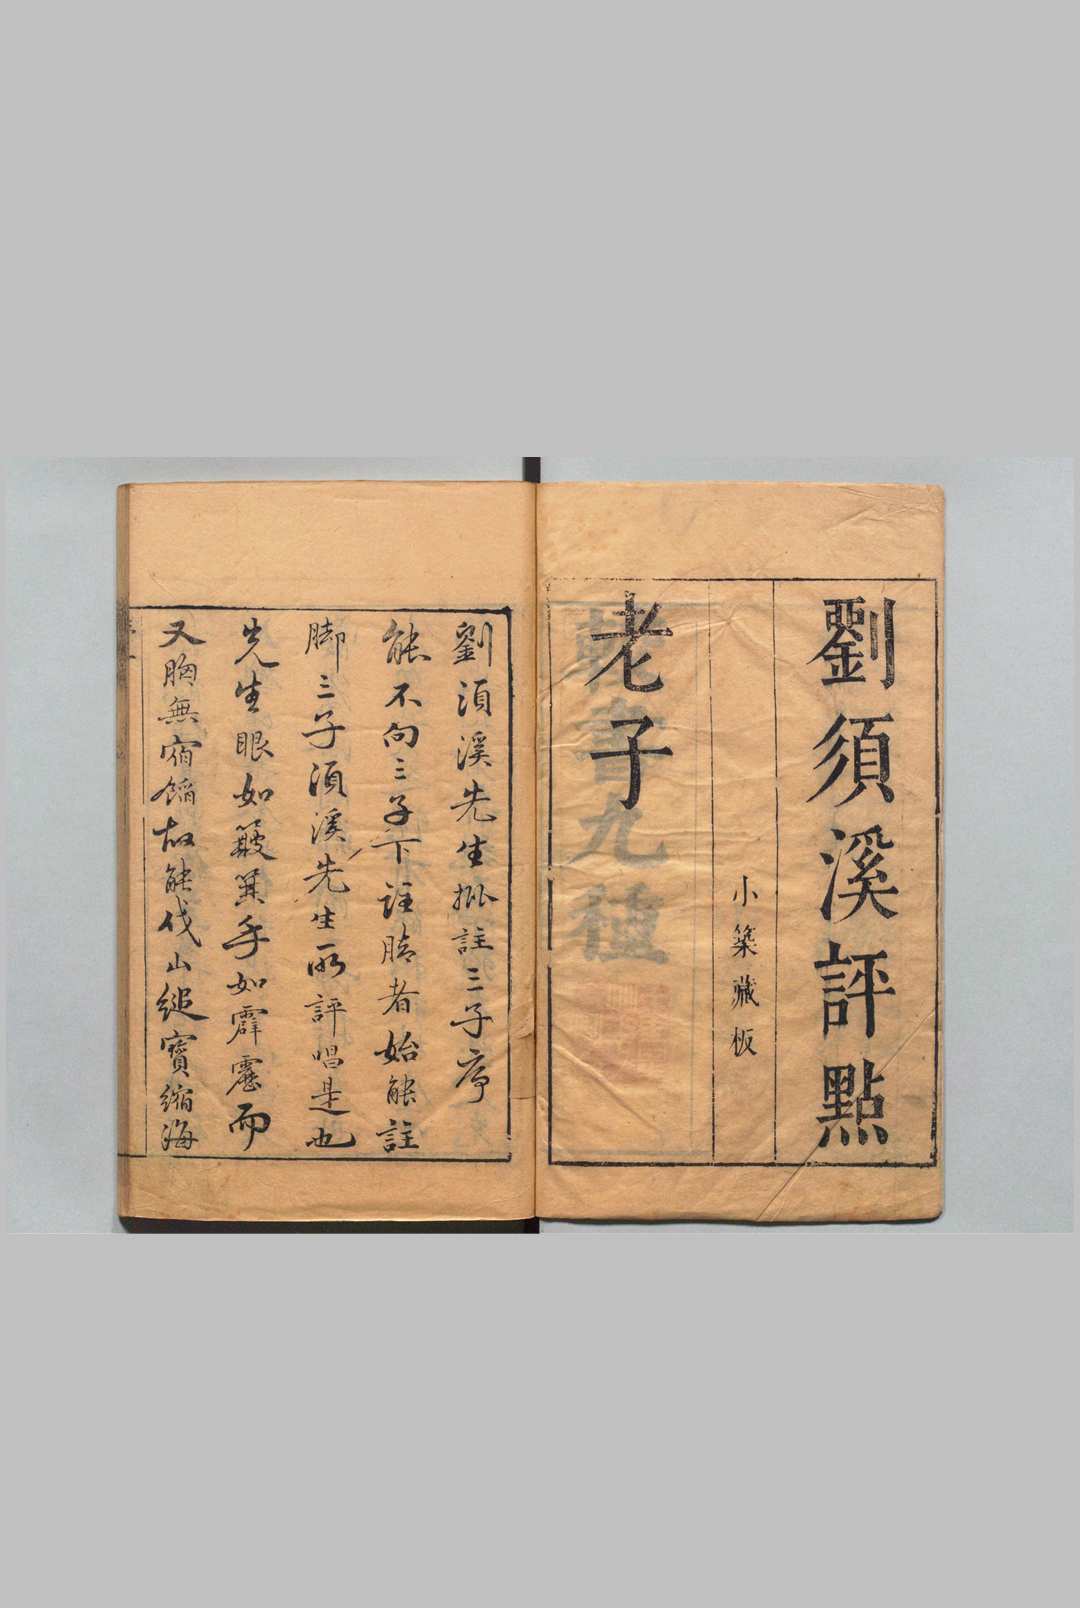 劉須溪評點
小築藏板
老子
劉須溪先生批註三子序
能不向三子下註脚者始能註
脚三子須溪先生所評唱是也
先生眼如簸箕手如霹靂而
又胸無宿餡故能伐山縋寶縮海